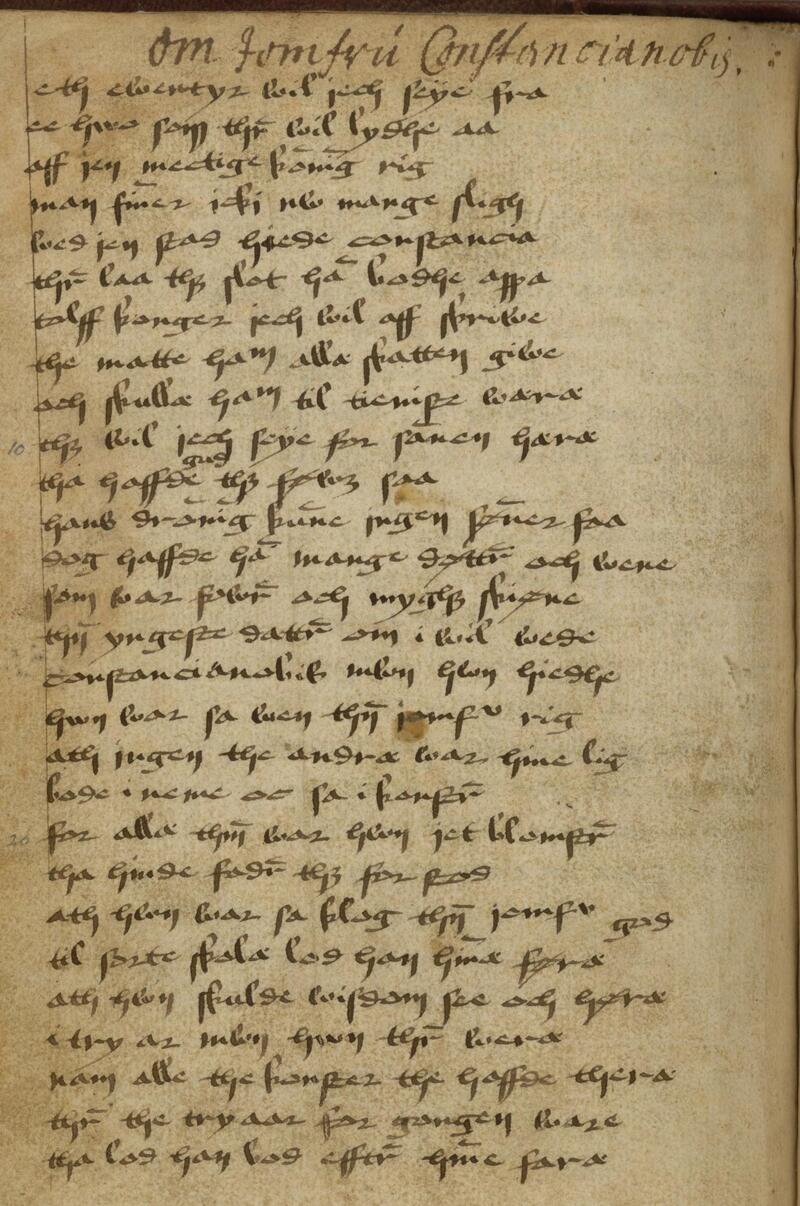 Om Jomfrú Constancianobis.
eth ewentyr wil jech seye fra
ee hwo som thr̄ wil lydhe aa
aff jen mectige kōnīg rig
man fīner icki nw mange sligh
wed jen stad hiede constancia
thr̄ laa thꝫ slot hā bodhe appa
tolff konger jech wil aff skriwe
the matte ham allæ skatten giwe
och skullæ ham til tieniste wæræ
10 thꝫ wil jech seye for sānen hæræ
tha haffde gud thꝫ føwꝫ saa
hans drōnīg kūne jngen sø̄ner faa
dog haffde hā mange døttr̄ och wene
som war stowr̄ och myghꝫ skiøne
thn̄ yngeste dattr̄ om i wil wede
constancianobis mwn hwn hiedhe
hwn war sa wen thn̄ iomfv rig
ath jngen the andræ war hine lig
bode i neme oc sa i konstr̄
20 for allæ thm̄ war hwn jet blomstr̄
tha hinde fadr̄ thꝫ for stod
ath hwn war sa klog thn̄ jomfv god
til sorte skolæ lod han hīnæ føræ
ath hwn skulde wisdom see och høræ
i try ar mwn hwn thr̄ weræ
nam alle the konster the haffde theræ
thr̄ the try aar for gongen ware
tha lod han bod efftr̄ hīne faræ